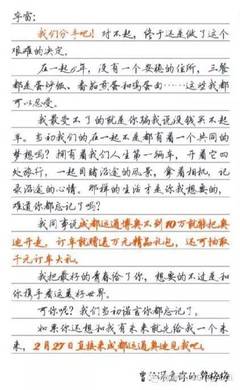 李雷:
我们分手吧!对不起,终于还是做了这个
艰难的决定。
在一起6年,没有一个安稳的住所,三餐
都是蛋炒饭、番茄煎蛋和鸡蛋面……这些我都
可以忍受。
我最受不了的就是你骗我说没钱买不起
车。当初我们的在一起不是都有着一个共同的
梦想吗?拥有着我们人生第一辆车,开着它四
处旅行,一起目睹沿途的风景,拿着相机,记
录沿途的心情。那样的生活才是你我想要的,
难道你都忘记了吗?
我同事说成都运通博奥不到10万就能把奥
迪开走,订车就赠送万元精品礼包,还可抽取
千元订车大礼。
我把最好的青春给了你,想要的不过是和
你携手看这最好世界。
可你呢?我们当初诺言你都忘记了。
如果你还想和我有未来就先给我一个未
来,2月27日直接来成都运通奥迪见我吧!
曾经深爱你的韩梅梅